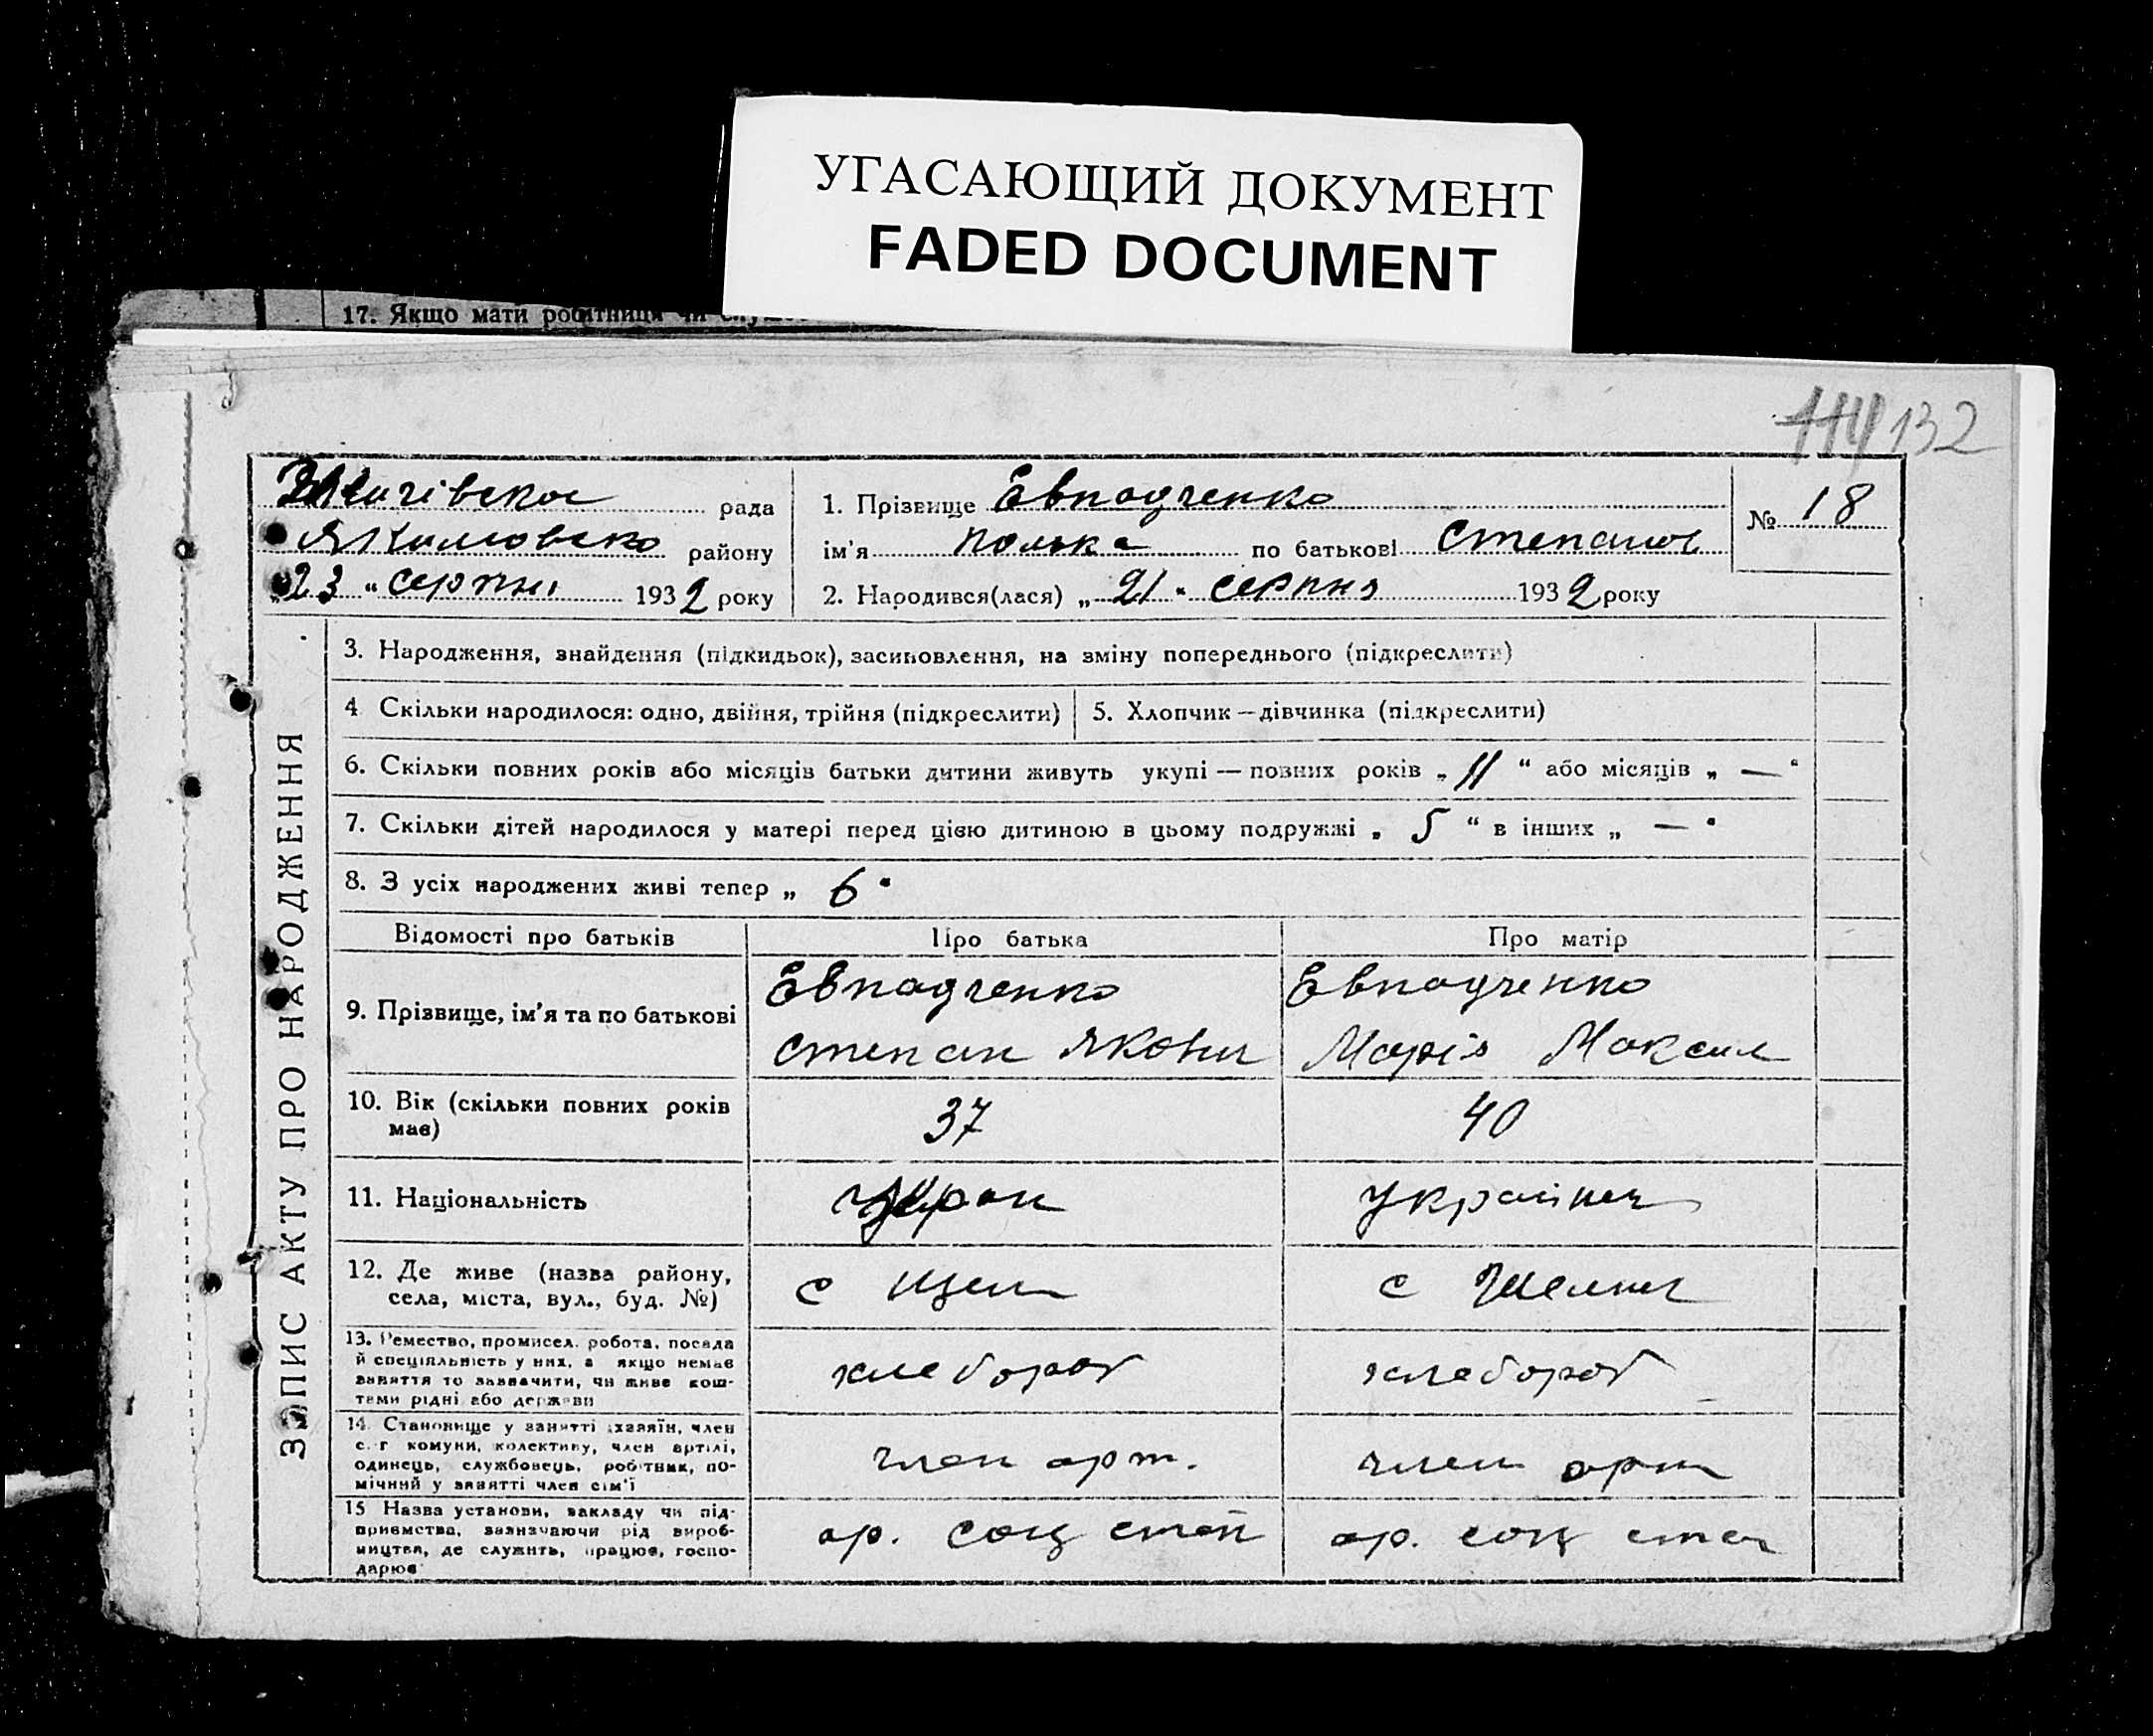 УГАСАЮЩИЙ ДОКУМЕНТ
FADED DOCUMENT
17. Якщо мати робітниця чи
132
рада
1. Прізвище Евпадченко
№ 18
району
ім'я по батькові Степанов
23 " серпня 1932 року
2. Народився(лася) „ 21 " серпня 1932 року
ЗАПИС АКТУ ПРО НАРОДЖЕННЯ
3. Народження, знайдення (підкидьок), засиновлення, на зміну попереднього (підкреслити)
4 Скільки народилося: одно, двійня, трійня (підкреслити)
5. Хлопчик — дівчинка (підкреслити)
6. Скільки повних років або місяців батьки дитини живуть укупі — повних років „ 11 “ або місяців „ — “
7. Скільки дітей народилося у матері перед цією дитиною в цьому подружжі „ 5 “ в інших „ — “
8. З усіх народжених живі тепер „ 6 “
Відомості про батьків
Про батька
Про матір
9. Прізвище, ім'я та по батькові
Евпадченко
Степан Якович
Евпадченко
Марія Максим
10. Вік (скільки повних років
має)
37
40
11. Національність
україн
12. Де живе (назва району,
села, міста, вул., буд. №)
с
с
13. Ремество, промисел, робота, посада
й спеціяльність у них, а якщо немає
заняття то зазначити, чи живе кош-
тами рідні або держави
хлебороб
хлебороб
14. Становище у занятті (хазяїн, член
с. г комуни, колективу, член артілі,
одинець, службовець, робітник, по-
мічний у занятті член сім'ї
член арт.
член арт
15 Назва установи, закладу чи під-
приємства, зазначаючи рід вироб-
ництва, де служить, працює, госпо-
дарює
ар. соц степ
ар. соц